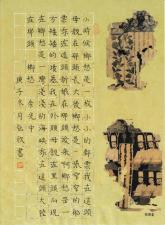 小時候鄉愁是一枚小小的郵票我在這頭
母親在那頭長大後鄉愁是一張窄窄的船
票我在這頭新娘在那頭後來啊鄉愁是一
方矮矮的墳墓我在外頭母親在裏頭而現
在鄉愁是一灣淺淺的海峽我在這頭大陸
在那頭 鄉愁 余光中
庚子冬月弘毅書